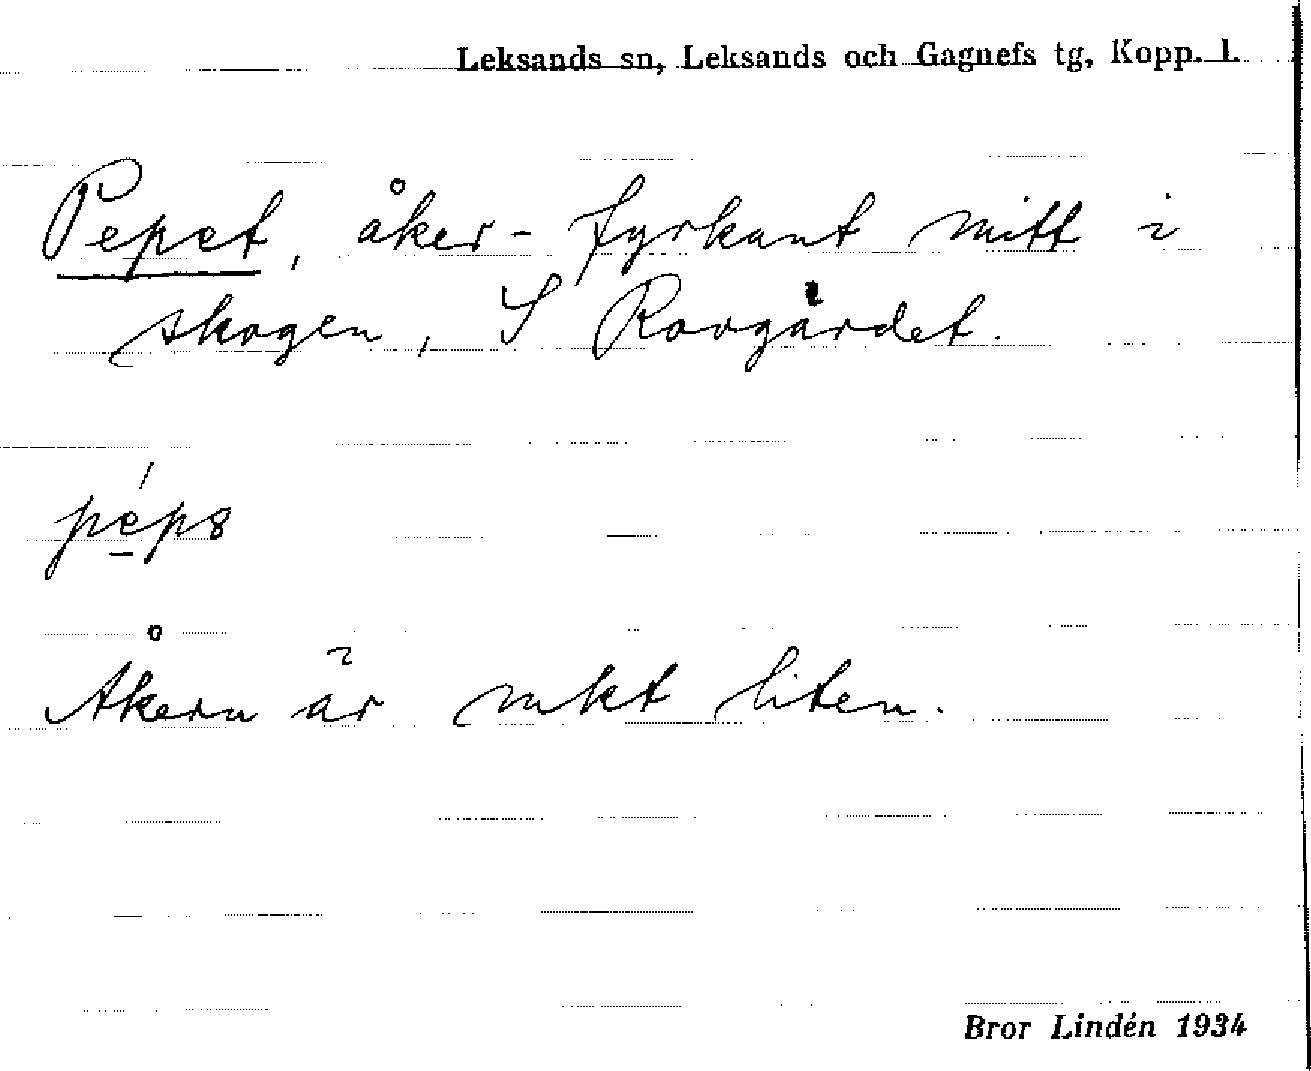 Leksands sn, Leksands och Gagnefs tg, Kopp. l.
Pepet, åker-fyrkant mitt i
skogen, S Rovgärdet.
péps
Åkern är mkt liten.
Bror Lindén 1934